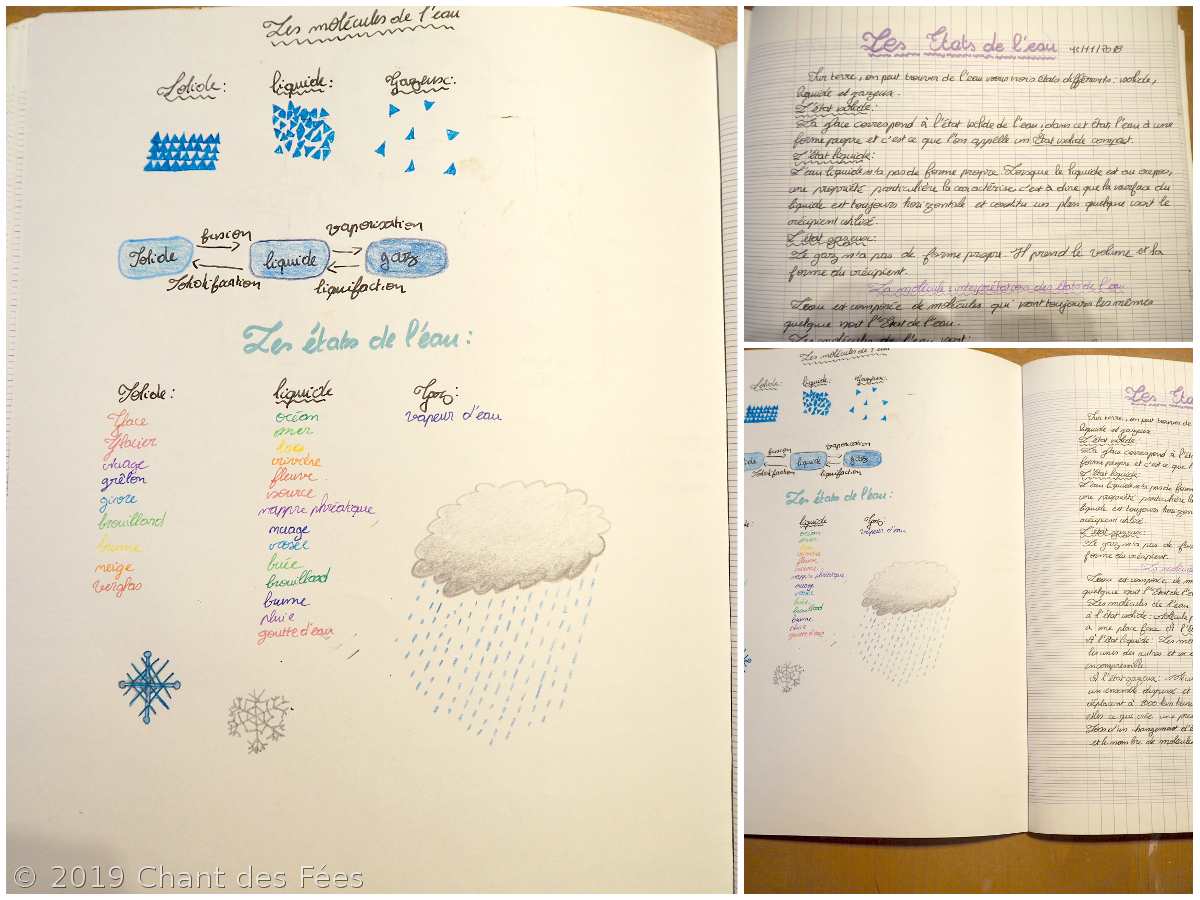 Les molécules de l'eau
Solide:
liquide:
Gazeux:
fusion
vaporisation
Solide
liquide
gaz
Solidification
liquifaction
Les états de l'eau:
Solide:
Glace
Glacier
nuage
grêlon
givre
brouillard
brume
neige
verglas
liquide
océan
mer
lac
rivière
fleuve
source
nappe phréatique
nuage
rosée
buée
brouillard
brume
pluie
goutte d'eau
Gaz:
vapeur d'eau
© 2019 Chant des Fées
Les Etats de l'eau
Sur terre, on peut trouver de l'eau sous trois états différents: solide,
liquide et gazeux.
L'état solide:
La glace correspond à l'état solide de l'eau, dans cet état, l'eau a une
forme propre et c'est ce que l'on appelle un État solide compact.
L'état liquide:
L'eau liquide n'a pas de forme propre. Lorsque le liquide est au repos,
une propriété particulière la caractérise, c'est à dire que la surface du
liquide est toujours horizontale et constitu un plan quelque soit le
récipient utilisé.
L'état gazeux:
Le gaz n'a pas de forme propre. Il prend le volume et la
forme du récipient.
La molécule: interprétation des états de l'eau
L'eau est composée de molécules qui sont toujours les mêmes
quelque soit l'État de l'eau.
Les molécules de l'eau sont:
Les molécules de l'eau
Solide:
liquide:
Gazeux:
fusion
vaporisation
liquide
gaz
Solidification
liquifaction
Les états de l'eau:
liquide
océan
mer
lac
rivière
fleuve
source
nappe phréatique
nuage
rosée
buée
brouillard
brume
pluie
goutte d'eau
Gaz:
vapeur d'eau
Les Eta
Sur terre, on peut trouver de
liquide et gazeux.
L'état solide:
La glace correspond à l'éta
forme propre et c'est ce que l
L'état liquide:
L'eau liquide n'a pas de forme
une propriété particulière la
liquide est toujours horizonta
récipient utilisé.
L'état gazeux:
Le gaz n'a pas de fo
forme du récipient.
La molécule
L'eau est composée de m
quelque soit l'État de l'e
Les molécules de l'eau
à l'état solide: molécule
a une place fixe
A l'état liquide: Les mo
les unes des autres et
incompressible.
A l'état gazeux:
un ensemble dispersé et
déplacent à
elles ce que crée une pres
Lors d'un changement d'é
et le nombre de molécules